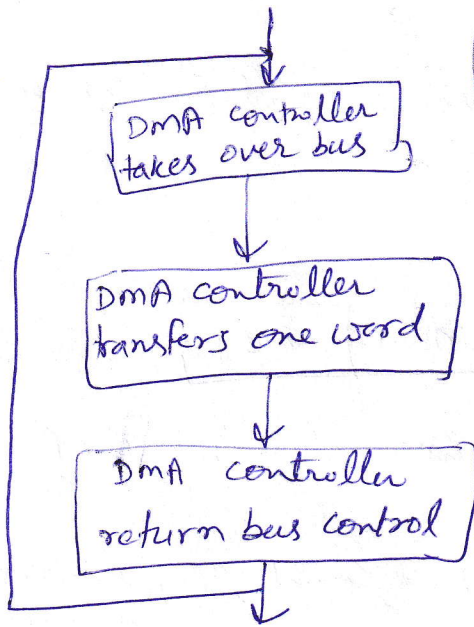 DMA controller
takes over bus
DMA controller
transfers one word
DMA controller
return bus control